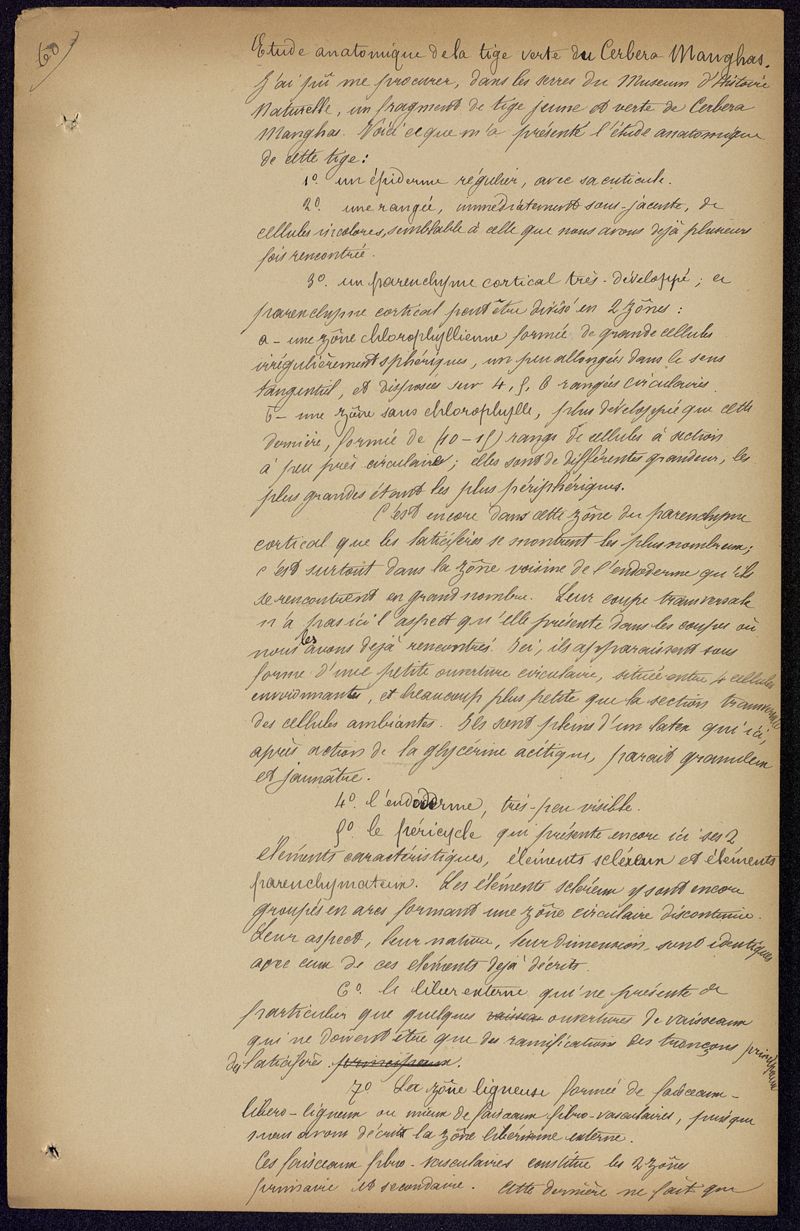 60
Etude anatomique de la tige verte du Cerbera Manghas.
J'ai pû me procurer, dans les serres du Museum d'Histoire
Naturelle, un fragment de tige jeune et verte de Cerbera
Manghas. Voici ce que m'a présenté l'étude anatomique
de cette tige :
1º. un épiderme régulier, avec sa cuticule.
2º. une rangée, immédiatement sous-jacente, de
cellules incolores, semblable à celle que nous avons déjà plusieurs
fois rencontrée.
3º. un parenchyme cortical très-développé ; ce
parenchyme cortical peut être divisé en 2 zônes :
a - une zône chlorophyllienne formée de grande cellules
irrégulièrement sphériques, un peu allongées dans le sens
tangentiel, et disposées sur 4, 5, 6 rangées circulaires.
b - une zône sans chlorophylle, plus développée que cette
dernière, formée de (10-15) rangs de cellules à section
à peu près circulaire ; elles sont de différentes grandeur, les
plus grandes étant les plus périphériques.
C'est encore dans cette zône du parenchyme
cortical que les laticifères se montrent les plus nombreux ;
c'est surtout dans la zône voisine de l'endoderme qu'ils
se rencontrent en grand nombre. Leur coupe transversale
n'a pas ici l'aspect qu'elle présente dans les coupes où
nous les avons déjà rencontrés. Ici, ils apparaissent sous
forme d'une petite ouverture circulaire, située entre 4 cellules
environnantes, et beaucoup plus petite que la section transversale
des cellules ambiantes. Ils sont pleins d'un latex qui ici,
après action de la glycérine acétique, parait granuleux
et jaunâtre.
4º. l'endoderme, très-peu visible.
5º. le péricycle qui présente encore ici ses 2
éléments caractéristiques, éléments scléreux et éléments
parenchymateux. Les éléments scléreux y sont encore
groupés en arcs formant une zône circulaire discontinue.
Leur aspect, leur nature, leur dimension sont identiques
avec ceux de ces elements déjà décrits.
6º. le liber externe qui ne présente de
particulier que quelques vaisseau ouvertures de vaisseaux
qui ne doivent être que des ramifications des tronçons principaux
des laticifères principaux.
7º La zône ligneuse formée de faisceaux-
libero-ligneux ou mieux de faisceaux fibro-vasculaires, puisque
nous avons décrit la zône libérienne externe.
Ces faisceaux fibro-vasculaires constitue les 2 zônes
primaire et secondaire. Cette dernière ne fait que